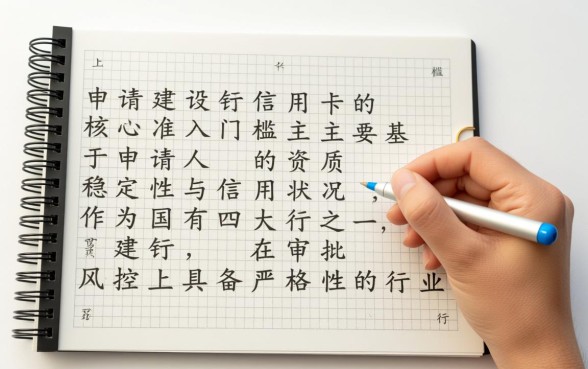 上 槛
申请建设钉信用卡的
核心准入门槛主主要基
于申请人 的资质
稳定性与信用状况,
作为国有四大行之一,
建钉, 在审批
风控上具备严格性的行业
行